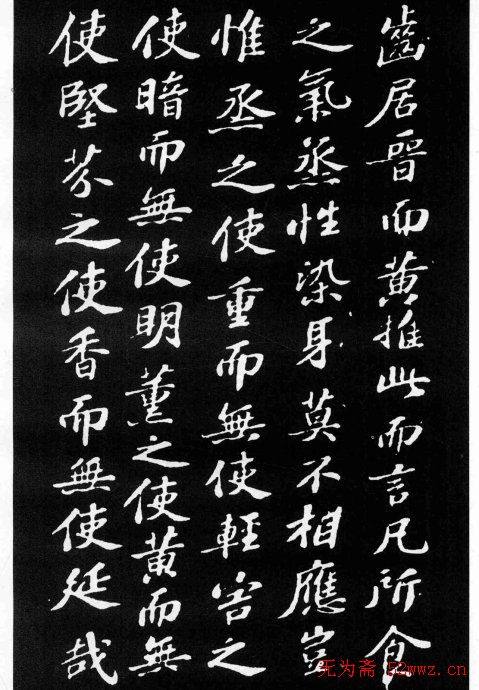 齒居晉而黄推此而言凡所食
之氣蒸性染身莫不相應豈
惟蒸之使重而無使輕害之
使暗而無使明薰之使黄而無
使堅芬之使香而無使延哉
无为斋 52wwz.cn